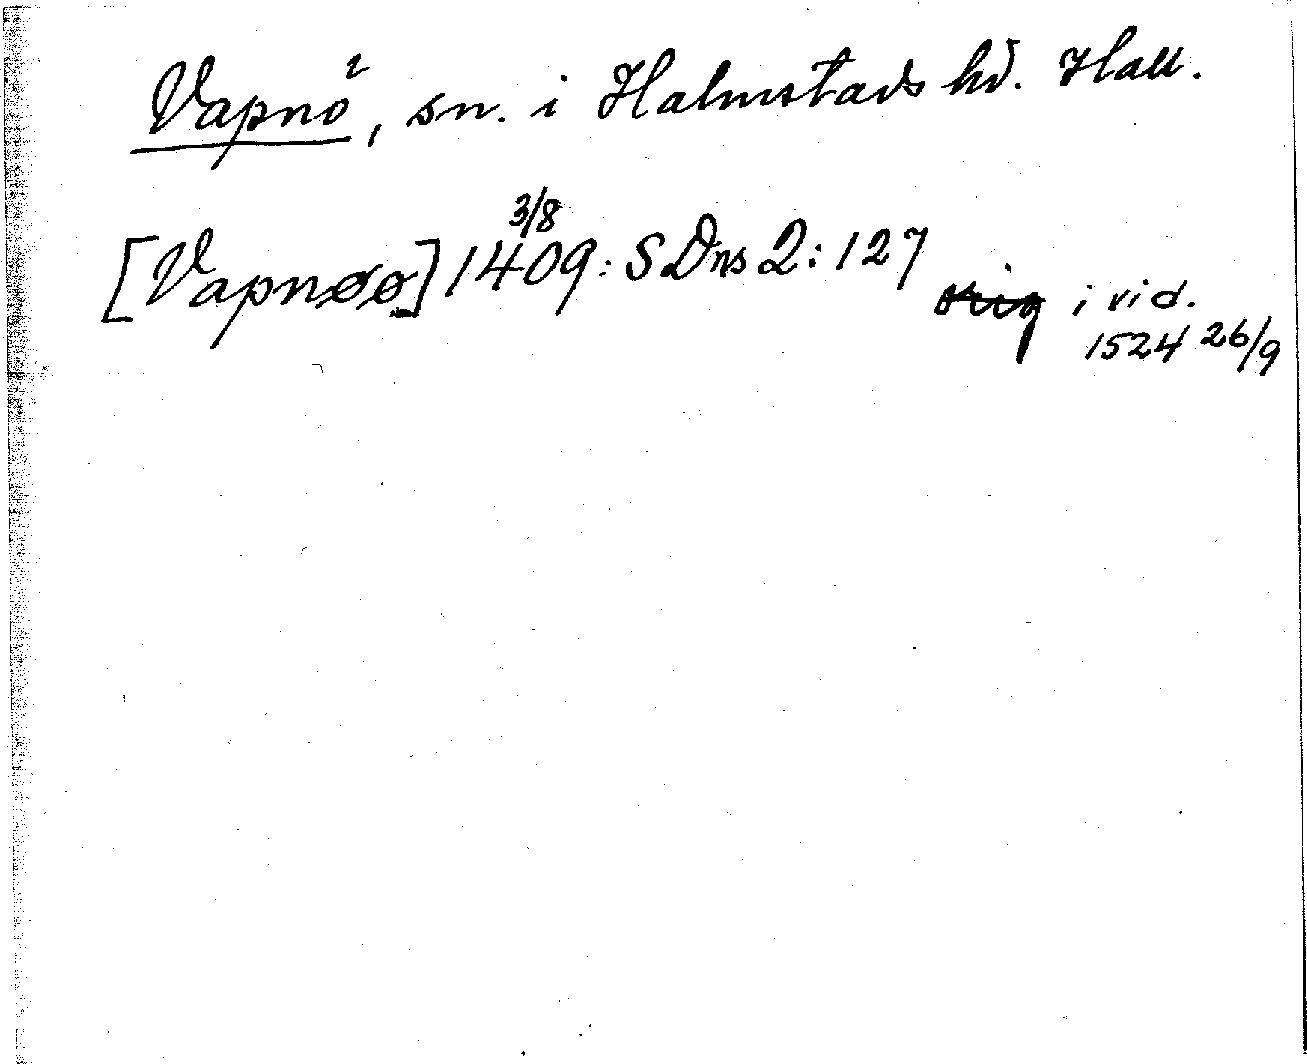 Vapnö, sn. i Halmstads hd. Hall.
[Vapnøø] 1409 3/8: SDns 2: 127
orig i vid.
1524 26/9